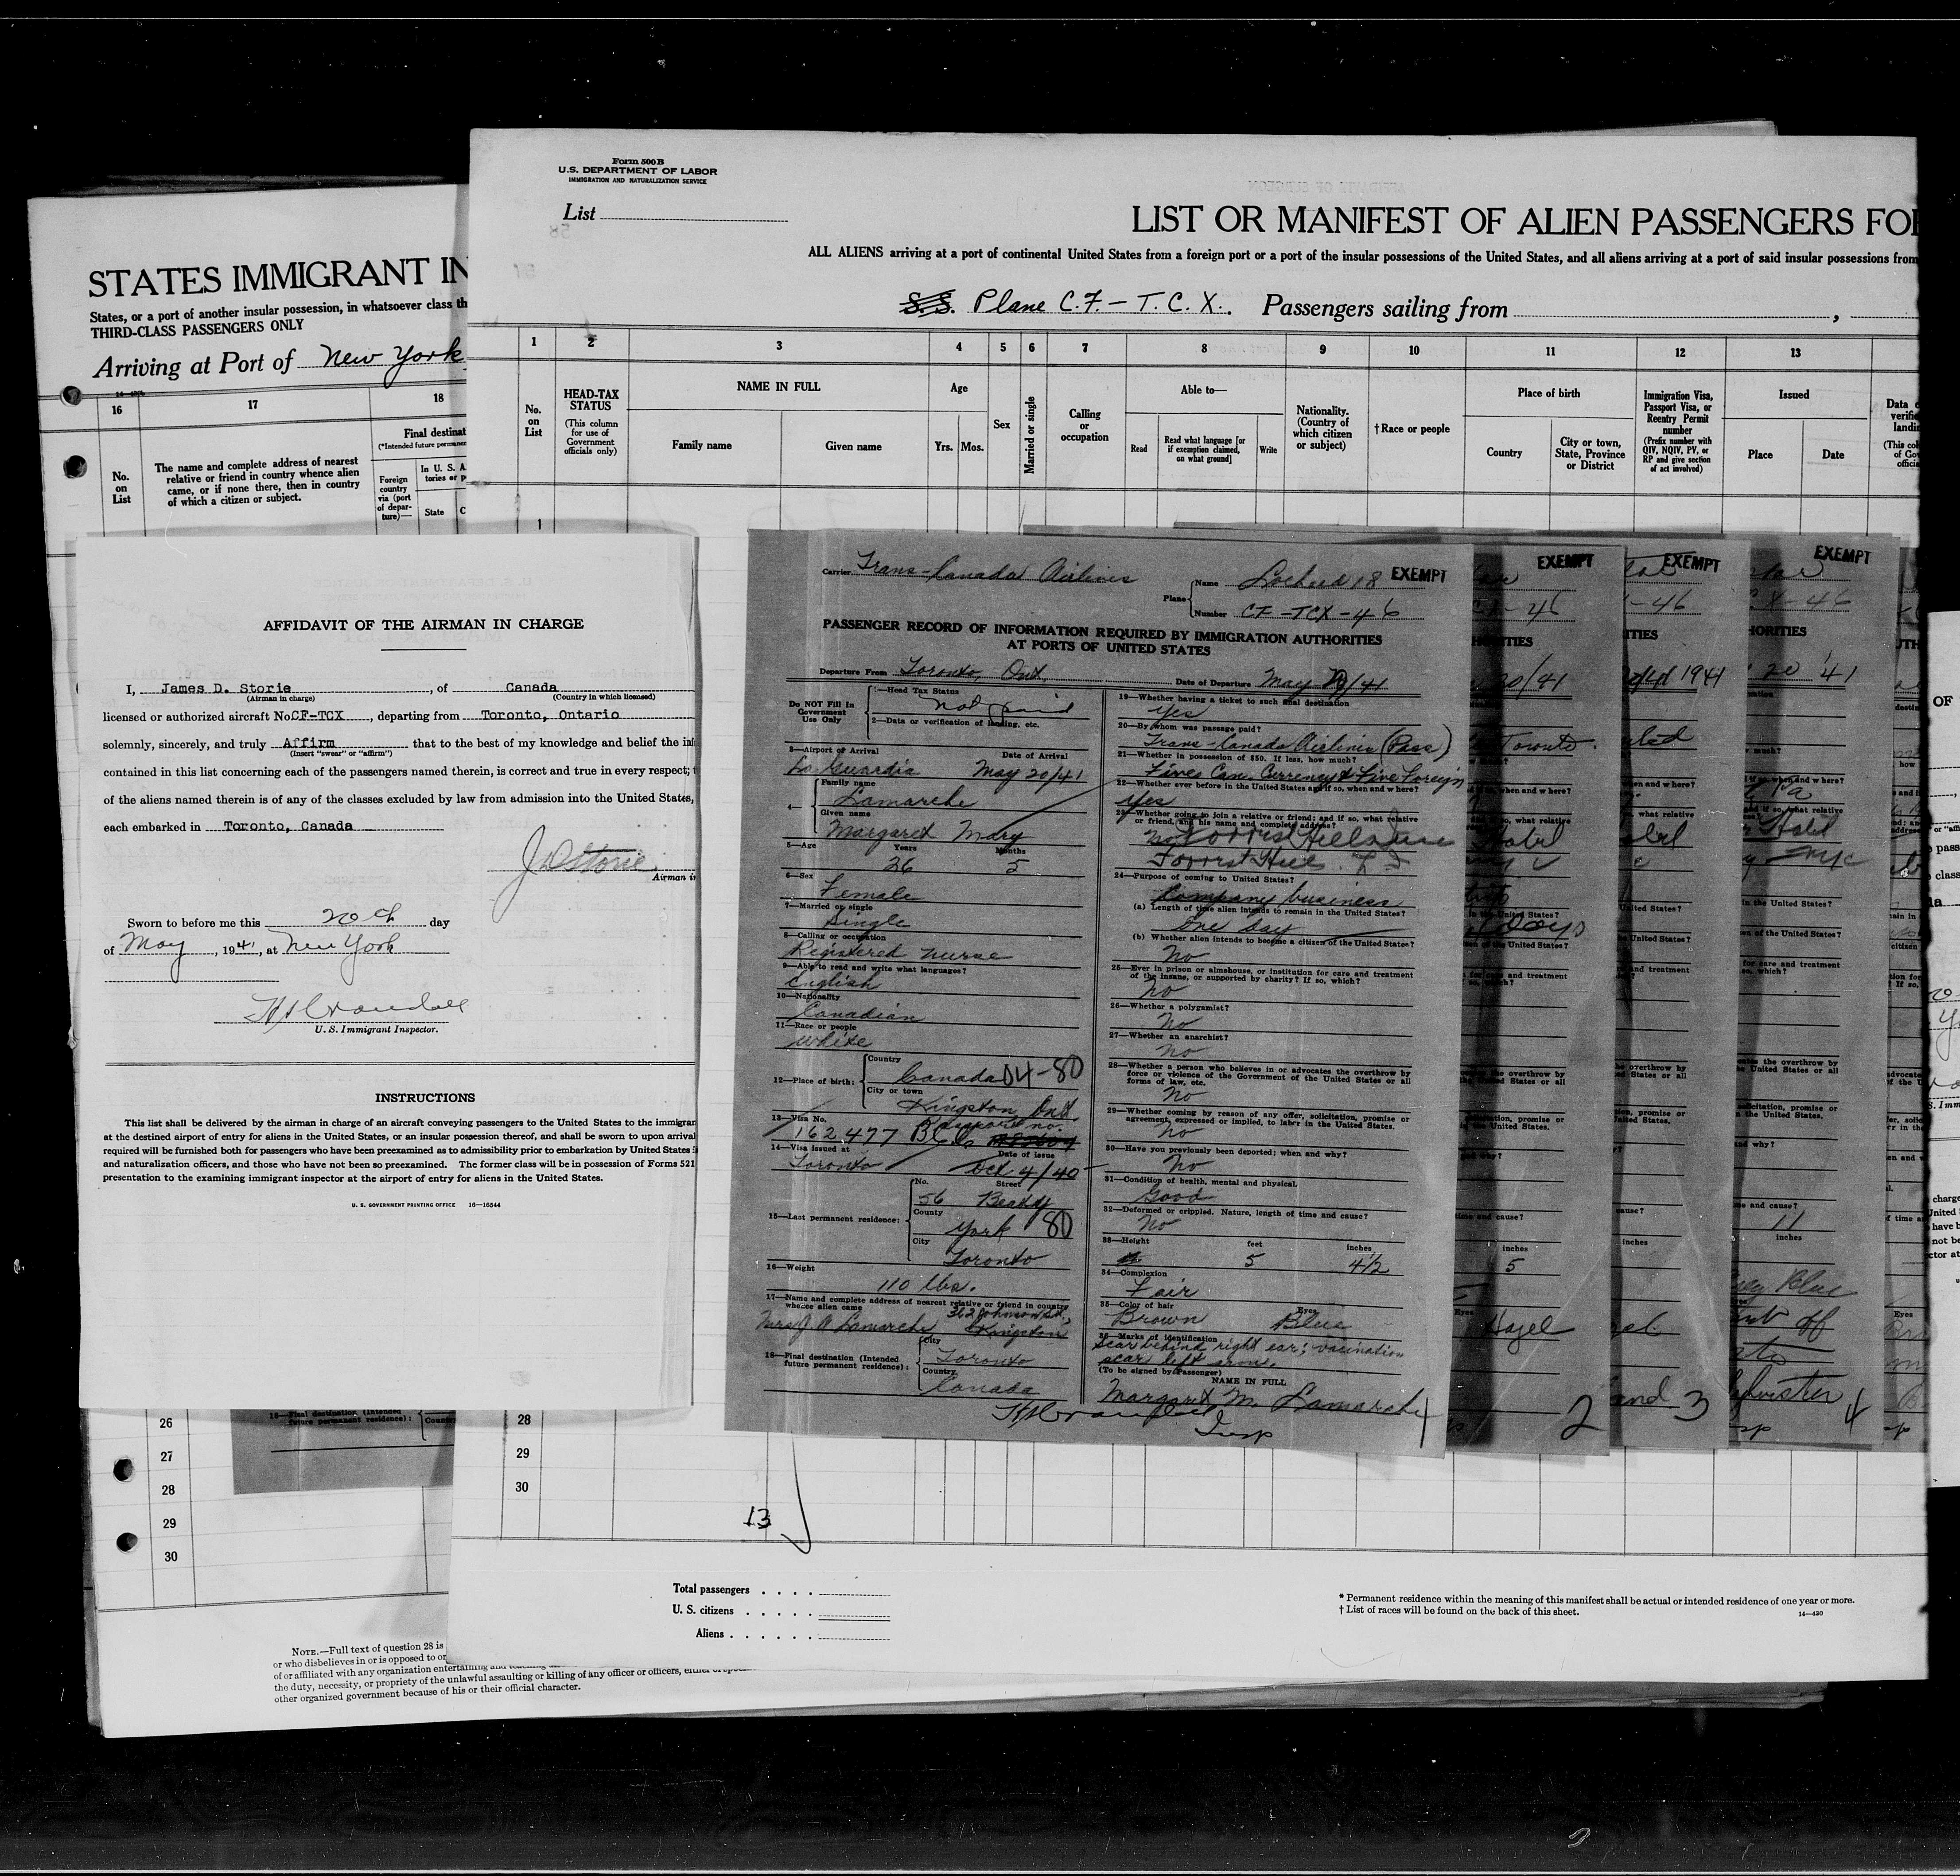 STATES IMMIGRANT IN
States, or a port of another insular possession, in whatsoever class th
THIRD-CLASS PASSENGERS ONLY
Arriving at Port of New York
16
17
18
No. on List
The name and complete address of nearest
relative or friend in country whence alien
came, or if none there, then in country
of which a citizen or subject.
Final destinat
(*Intended future permane
Foreign
country
via (port
of depar-
ture)—
In U. S. A
tories or p
State
C
Form 500 B
U.S. DEPARTMENT OF LABOR
IMMIGRATION AND NATURALIZATION SERVICE
List
LIST OR MANIFEST OF ALIEN PASSENGERS FO
ALL ALIENS arriving at a port of continental United States from a foreign port or a port of the insular possessions of the United States, and all aliens arriving at a port of said insular possessions from
S.S. Plane C.F.-T.C.X. Passengers sailing from
1 2 3 4 5 6 7 8 9 10 11 12 13
No. on List
HEAD-TAX
STATUS
(This column
for use of
Government
officials only)
NAME IN FULL
Family name
Given name
Age
Yrs.
Mos.
Sex
Married or single
Calling
or
occupation
Able to—
Read
Read what language [or
if exemption claimed,
on what ground]
Write
Nationality.
(Country of
which citizen
or subject)
†Race or people
Place of birth
Country
City or town,
State, Province
or District
Immigration Visa,
Passport Visa, or
Reentry Permit
number
(Prefix number with
QIV, NQIV, PV, or
RP and give section
of act involved)
Issued
Place
Date
1
AFFIDAVIT OF THE AIRMAN IN CHARGE
I, James D. Storie, of Canada
(Airman in charge) (Country in which licensed)
licensed or authorized aircraft No CF-TCX, departing from Toronto, Ontario
solemnly, sincerely, and truly Affirm that to the best of my knowledge and belief the inf
(Insert "swear" or "affirm")
contained in this list concerning each of the passengers named therein, is correct and true in every respect;
of the aliens named therein is of any of the classes excluded by law from admission into the United States,
each embarked in Toronto, Canada
J D Storie
Airman i
Sworn to before me this 20th day
of May, 1941, at New York
U. S. Immigrant Inspector.
INSTRUCTIONS
This list shall be delivered by the airman in charge of an aircraft conveying passengers to the United States to the immigran
at the destined airport of entry for aliens in the United States, or an insular possession thereof, and shall be sworn to upon arrival
required will be furnished both for passengers who have been preexamined as to admissibility prior to embarkation by United States
and naturalization officers, and those who have not been so preexamined. The former class will be in possession of Forms 521
presentation to the examining immigrant inspector at the airport of entry for aliens in the United States.
U. S. GOVERNMENT PRINTING OFFICE 16—16544
Carrier Trans-Canada Airlines
Plane Name Lockeed 18 EXEMPT
Number CF-TCX-46
PASSENGER RECORD OF INFORMATION REQUIRED BY IMMIGRATION AUTHORITIES
AT PORTS OF UNITED STATES
Departure From Toronto, Ont. Date of Departure May 20/41
Do NOT Fill In
Government
Use Only
1—Head Tax Status
not paid
2—Data or verification of landing, etc.
3—Airport of Arrival Date of Arrival
La Guardia May 20/41
4— Family name
Lamarche
Given name
Margaret Mary
5—Age Years Months
26 5
6—Sex
Female
7—Married or single
Single
8—Calling or occupation
Registered nurse
9—Able to read and write what languages?
English
10—Nationality
Canadian
11—Race or people
White
12—Place of birth: Country
Canada 04-80
City or town
Kingston Ont
13—Visa No. Passport no.
162477
14—Visa issued at Date of issue
Toronto Oct 4/40
15—Last permanent residence: No. Street
56 Beaty
County
York 80
City
Toronto
16—Weight
110 lbs.
17—Name and complete address of nearest relative or friend in country
whence alien came 362 Johnson St.,
Mrs J A Lamarche Kingston
18—Final destination (Intended
future permanent residence): City
Toronto
Country
Canada
19—Whether having a ticket to such final destination
Yes
20—By whom was passage paid?
Trans-Canada Airlines (Pass)
21—Whether in possession of $50. If less, how much?
Five Can. Currency & Five Foreign
22—Whether ever before in the United States and if so, when and where?
Yes
23—Whether going to join a relative or friend; and if so, what relative
or friend, and his name and complete address?
No
24—Purpose of coming to United States?
Company business
(a) Length of time alien intends to remain in the United States?
One day
(b) Whether alien intends to become a citizen of the United States?
No
25—Ever in prison or almshouse, or institution for care and treatment
of the insane, or supported by charity? If so, which?
No
26—Whether a polygamist?
No
27—Whether an anarchist?
No
28—Whether a person who believes in or advocates the overthrow by
force or violence of the Government of the United States or all
forms of law, etc.
No
29—Whether coming by reason of any offer, solicitation, promise or
agreement, expressed or implied, to labor in the United States.
No
30—Have you previously been deported; when and why?
No
31—Condition of health, mental and physical.
Good
32—Deformed or crippled. Nature, length of time and cause?
No
33—Height feet inches
5 4 1/2
34—Complexion
Fair
35—Color of hair Eyes
Brown Blue
36—Marks of identification
Scar behind right ear; vacination
scar left arm.
(To be signed by Passenger)
NAME IN FULL
Margaret M. Lamarche
Insp
1
EXEMPT
20/41
Toronto
Hotel
days
5
Hazel
2
EXEMPT
1941
and 3
EXEMPT
20 '41
Pa
Hotel
NYC
11
inches
Blue
4
26
27
28
29
30
28
29
30
13
Total passengers
U. S. citizens
Aliens
* Permanent residence within the meaning of this manifest shall be actual or intended residence of one year or more.
† List of races will be found on the back of this sheet.
14—430
NOTE.—Full text of question 28 is
or who disbelieves in or is opposed to or
of or affiliated with any organization entertaining and teaching
the duty, necessity, or propriety of the unlawful assaulting or killing of any officer or officers, either of
other organized government because of his or their official character.